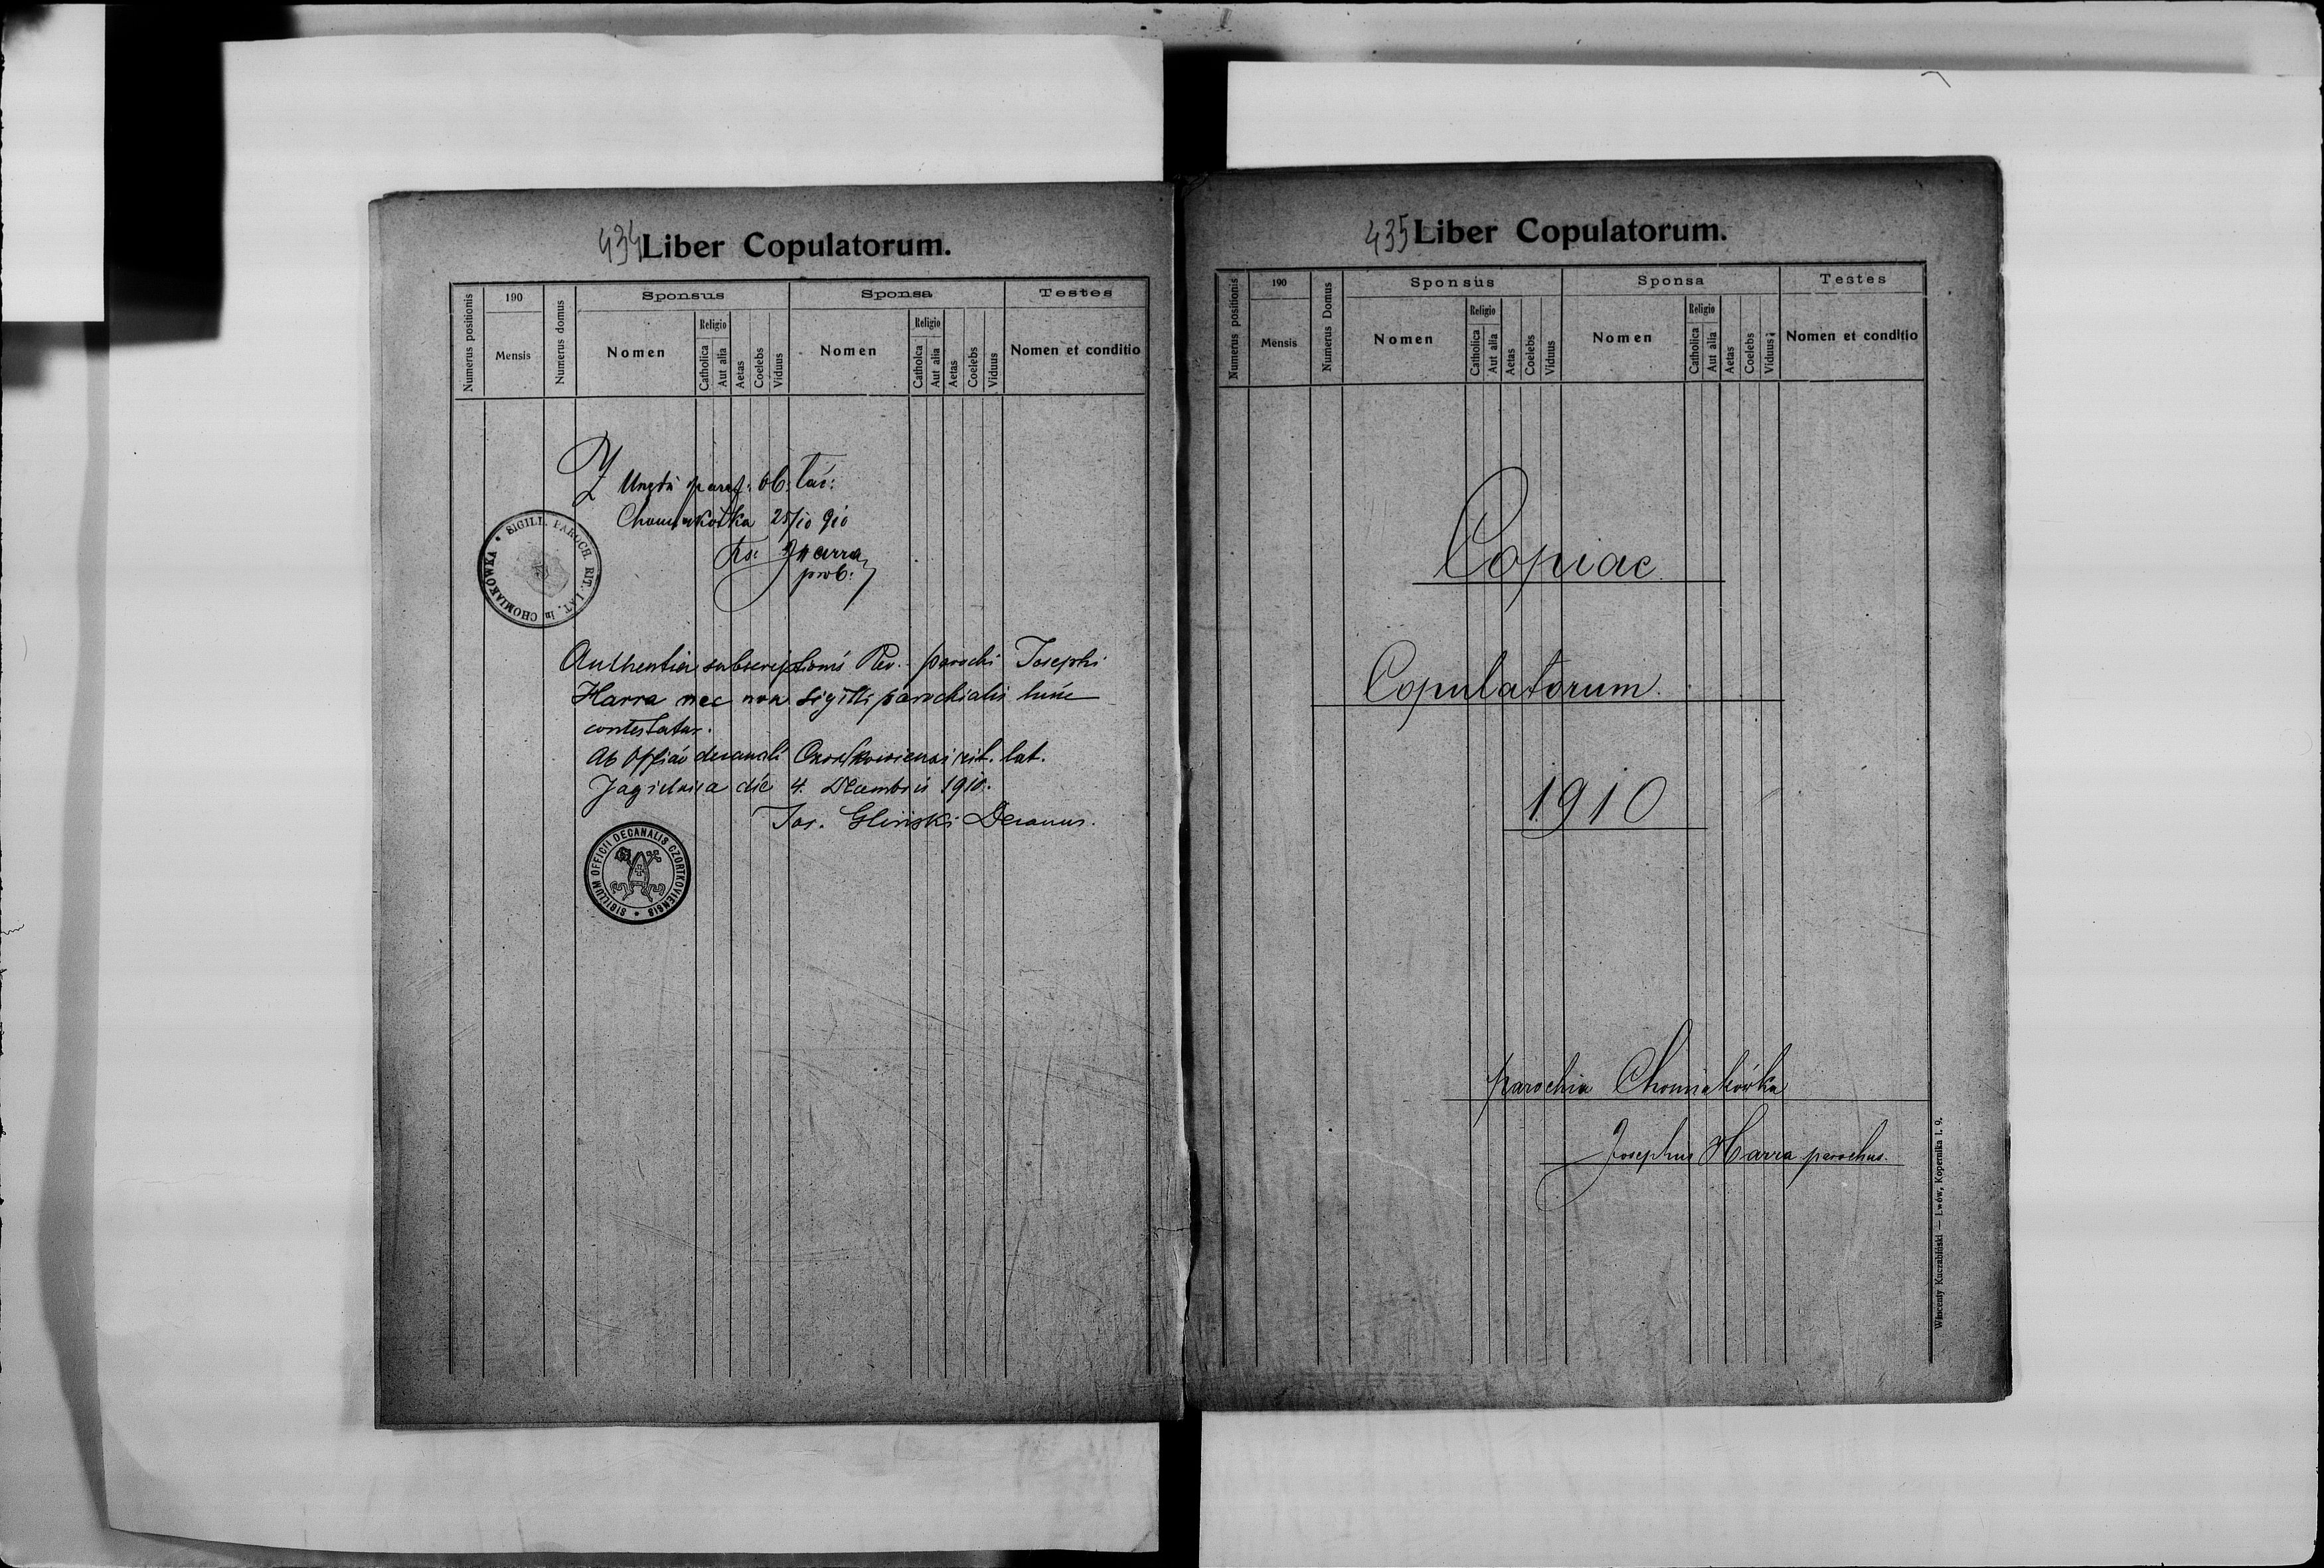 434 Liber Copulatorum.
Numerus positionis
190
Mensis
Numerus domus
Sponsus
Nomen
Religio
Catholica
Aut alia
Aetas
Coelebs
Viduus
Sponsa
Nomen
Religio
Catholca
Aut alia
Aetas
Coelebs
Viduus
Testes
Nomen et conditio
Z Urzędu paraf. ob. łać:
Chomiakówka 25/10 910
Ks. J Harra
prob:
SIGILL. PAROCH. RIT. LAT. in CHOMIAKÓWKA
Authentia subscriptionis Rev. parochi Josephi
Harra nec non sigilli parochialis hinc
contestatur.
Ab Officio decanali Czortkoviensi rit. lat.
Jagielnica die 4. Decembris 1910.
Jos. Gliński Decanus.
SIGILLUM OFFICII DECANALIS CZORTKOVIENSIS
435 Liber Copulatorum.
Numerus positionis
190
Mensis
Numerus Domus
Sponsus
Nomen
Religio
Catholica
Aut alia
Aetas
Coelebs
Viduus
Sponsa
Nomen
Religio
Catholica
Aut alia
Aetas
Coelebs
Viduus
Testes
Nomen et conditio
Copiae
Copulatorum.
1910
parochia Chomiakówka
Josephus Harra parochus.
Wincenty Kuczabiński — Lwów, Kopernika l. 9.